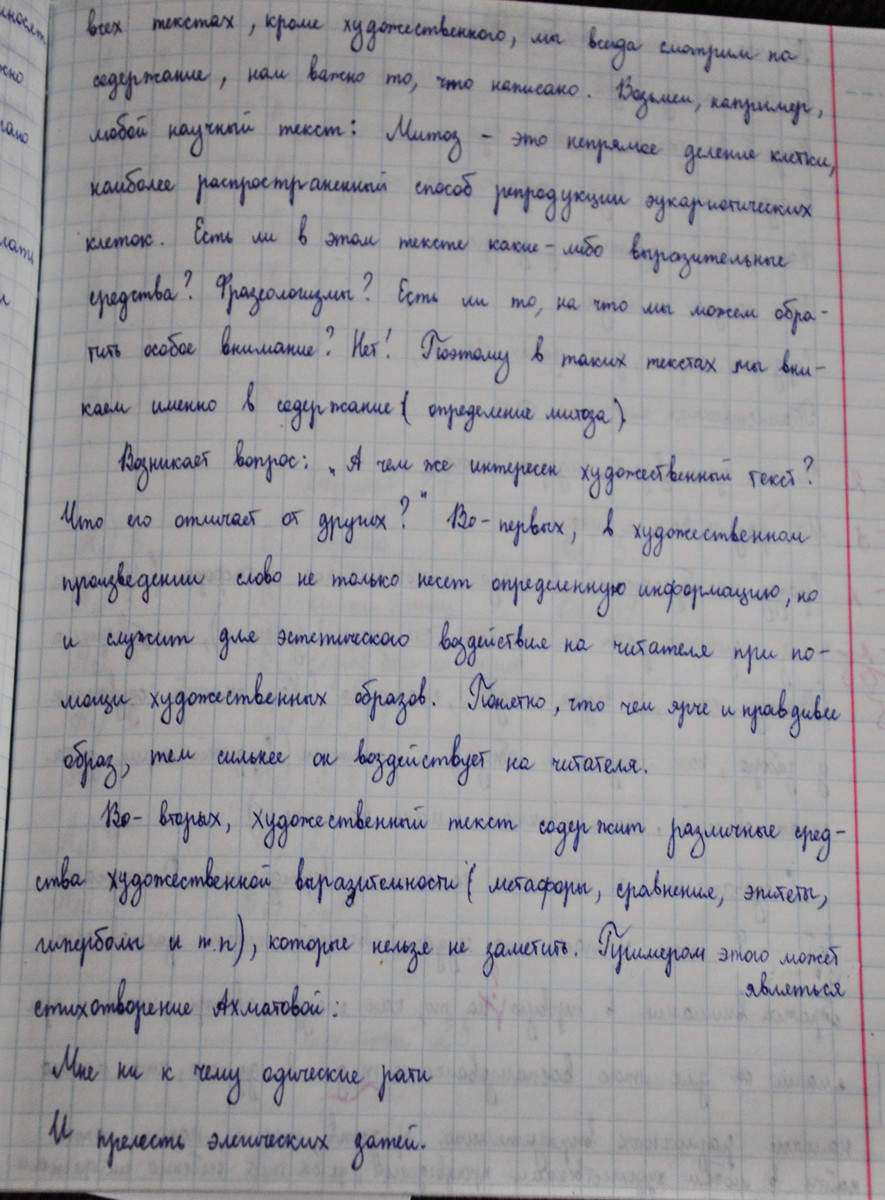 всех текстах, кроме художественного, мы всегда смотрим на
содержание, нам важно то, что написано. Возьмем, например,
любой научный текст: Митоз - это непрямое деление клетки,
наиболее распространенный способ репродукции эукариотических
клеток. Есть ли в этом тексте какие-либо выразительные
средства? Фразеологизмы? Есть ли то, на что мы можем обра-
тить особое внимание? Нет! Поэтому в таких текстах мы вни-
каем именно в содержание (определение митоза)
Возникает вопрос: „А чем же интересен художественный текст?
Что его отличает от других?" Во-первых, в художественном
произведении слово не только несет определенную информацию, но
и служит для эстетического воздействия на читателя при по-
мощи художественных образов. Понятно, что чем ярче и правдивее
образ, тем сильнее он воздействует на читателя.
Во-вторых, художественный текст содержит различные сред-
ства художественной выразительности (метафоры, сравнения, эпитеты,
гиперболы и т.п), которые нельзя не заметить. Примером этого может
являться
стихотворение Ахматовой:
Мне ни к чему одические рати
И прелесть элегических затей.